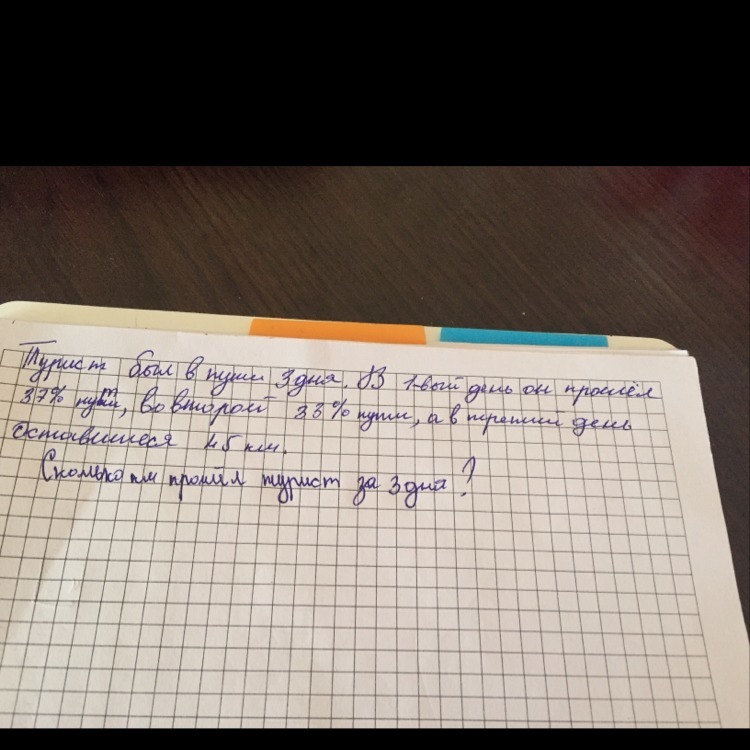 Турист был в пути 3 дня. В 1-вый день он прошёл
37% пути, во второй 33% пути, а в третий день
оставшиеся 45 км.
Сколько км прошёл турист за 3 дня?